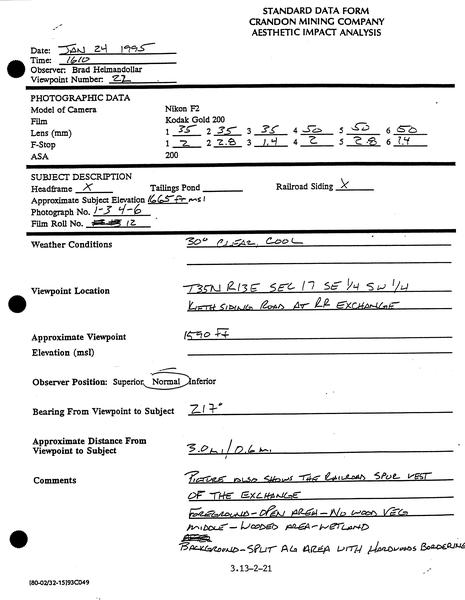 STANDARD DATA FORM
CRANDON MINING COMPANY
AESTHETIC IMPACT ANALYSIS
Date: JAN 24 1995
Time: 1610
Observer: Brad Heimandollar
Viewpoint Number: 22
PHOTOGRAPHIC DATA
Model of Camera Nikon F2
Film Kodak Gold 200
Lens (mm) 1 35 2 35 3 35 4 50 5 50 6 50
F-Stop 1 2 2 2.8 3 1.4 4 2 5 2.8 6 1.4
ASA 200
SUBJECT DESCRIPTION
Headframe X Tailings Pond Railroad Siding X
Approximate Subject Elevation 1665 ft msl
Photograph No. 1-3 4-6
Film Roll No. 12
Weather Conditions 30° CLEAR, COOL
Viewpoint Location T35N R13E SEC 17 SE 1/4 SW 1/4
KEITH SIDING ROAD AT RR EXCHANGE
Approximate Viewpoint 1590 FT
Elevation (msl)
Observer Position: Superior Normal Inferior
Bearing From Viewpoint to Subject 217°
Approximate Distance From
Viewpoint to Subject 3.0 mi/0.6 mi
Comments PICTURE ALSO SHOWS THE RAILROAD SPUR WEST
OF THE EXCHANGE
FOREGROUND-OPEN AREA-NO WOOD VEG
MIDDLE-WOODED AREA-WETLAND
BACKGROUND-SPLIT AG AREA WITH HARDWOODS BORDERING
3.13-2-21
[80-02/32-15]93C049